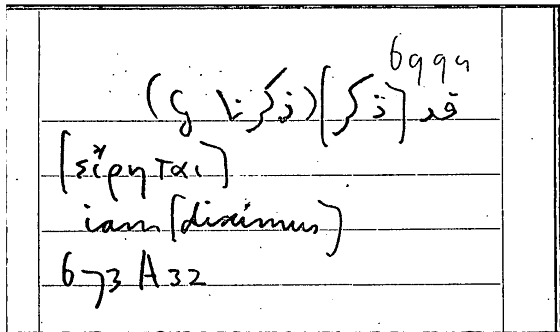 6999
قد [ذكر] (ذكرنا
[εἴρηται]
iam [diximus]
673 A 32